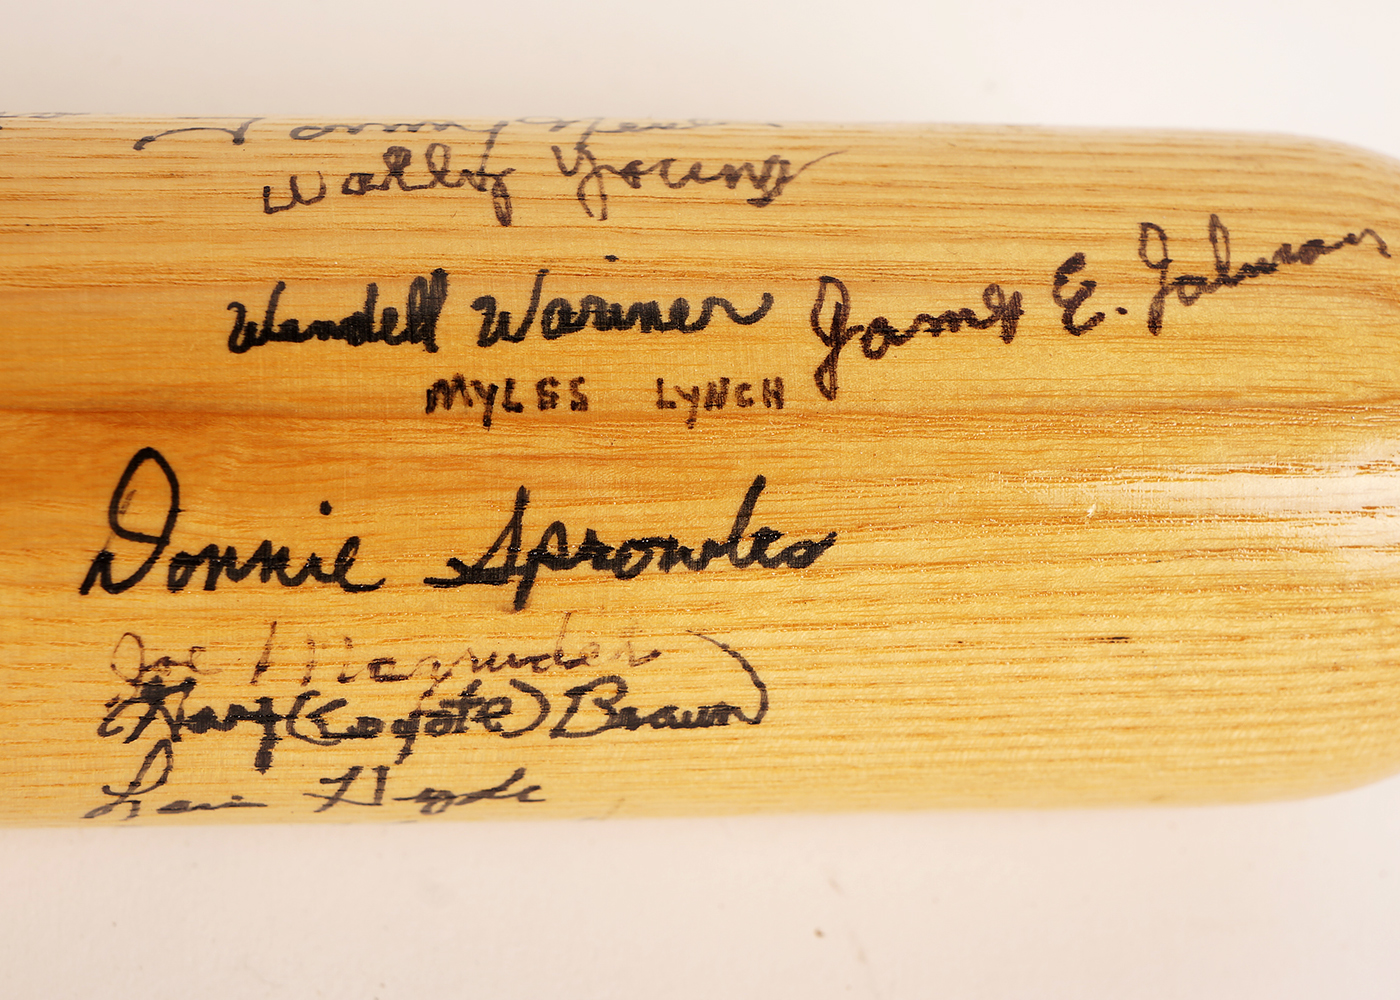 Tommy
Wally Young
Wendell Wariner James E. Johnson
MYLES LYNCH
Donnie Sprowles
Joe Magruder
Gary (Coyote) Brown
Hyde